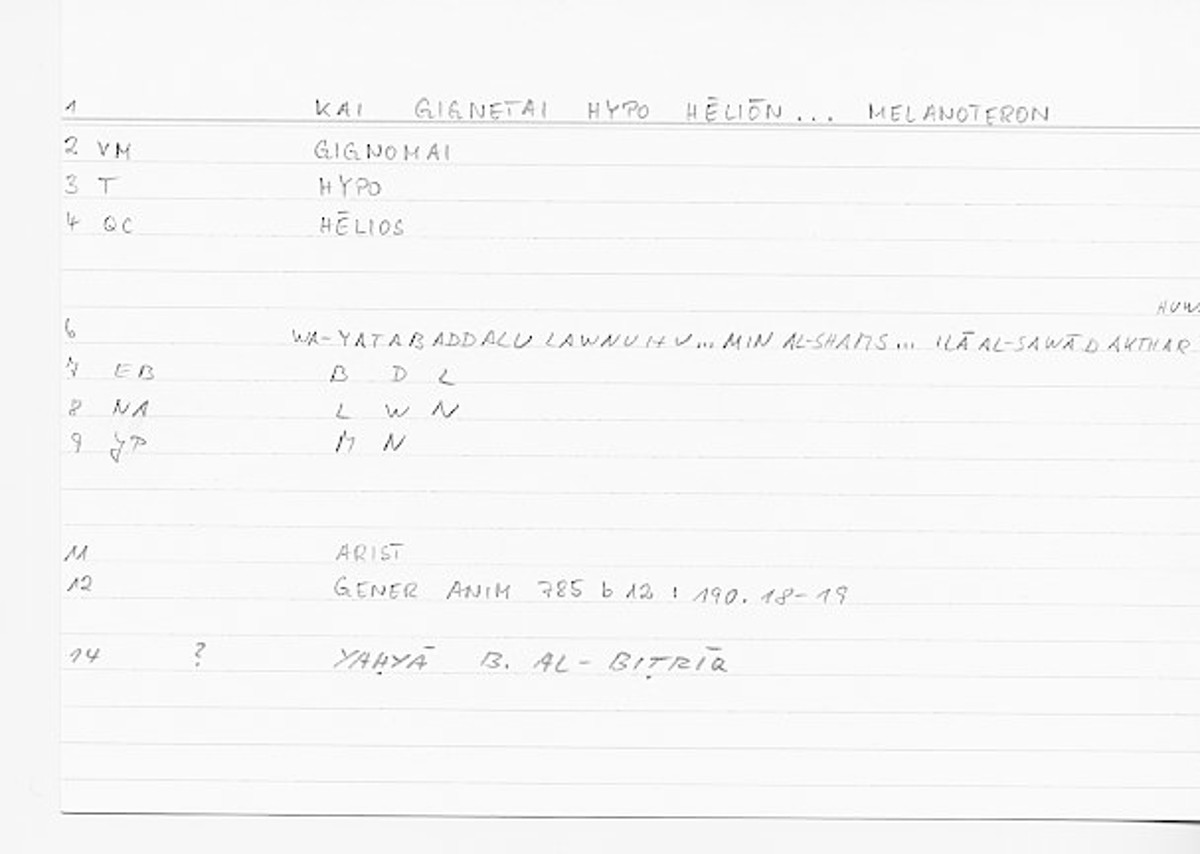 1 KAI GIGNETAI HYPO HĒLIŌN... MELANOTERON
2 VM GIGNOMAI
3 T HYPO
4 QC HĒLIOS
6 WA-YATABADDALU LAWNUHU... MIN AL-SHAMS... ILĀ AL-SAWĀD AKTHAR
7 EB B D L
8 NA L W N
9 JP M N
11 ARIST
12 GENER ANIM 785 b 12 : 190.18-19
14 ? YAḤYĀ B. AL-BIṬRĪQ